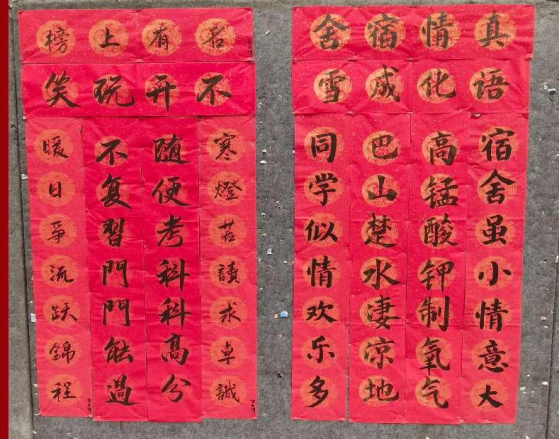 真情宿舍
语化成雪
宿舍虽小情意大
高锰酸钾制氧气
巴山楚水淒凉地
同学似情欢乐多
榜上有名
不开玩笑
寒燈苦讀求卓識
随便考科科高分
不复習門門能過
暖日爭流跃錦程